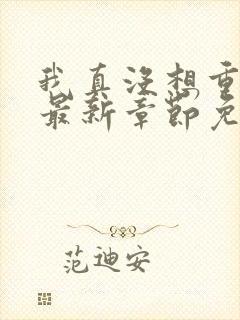 我真没想重
最新章节免
范迪安